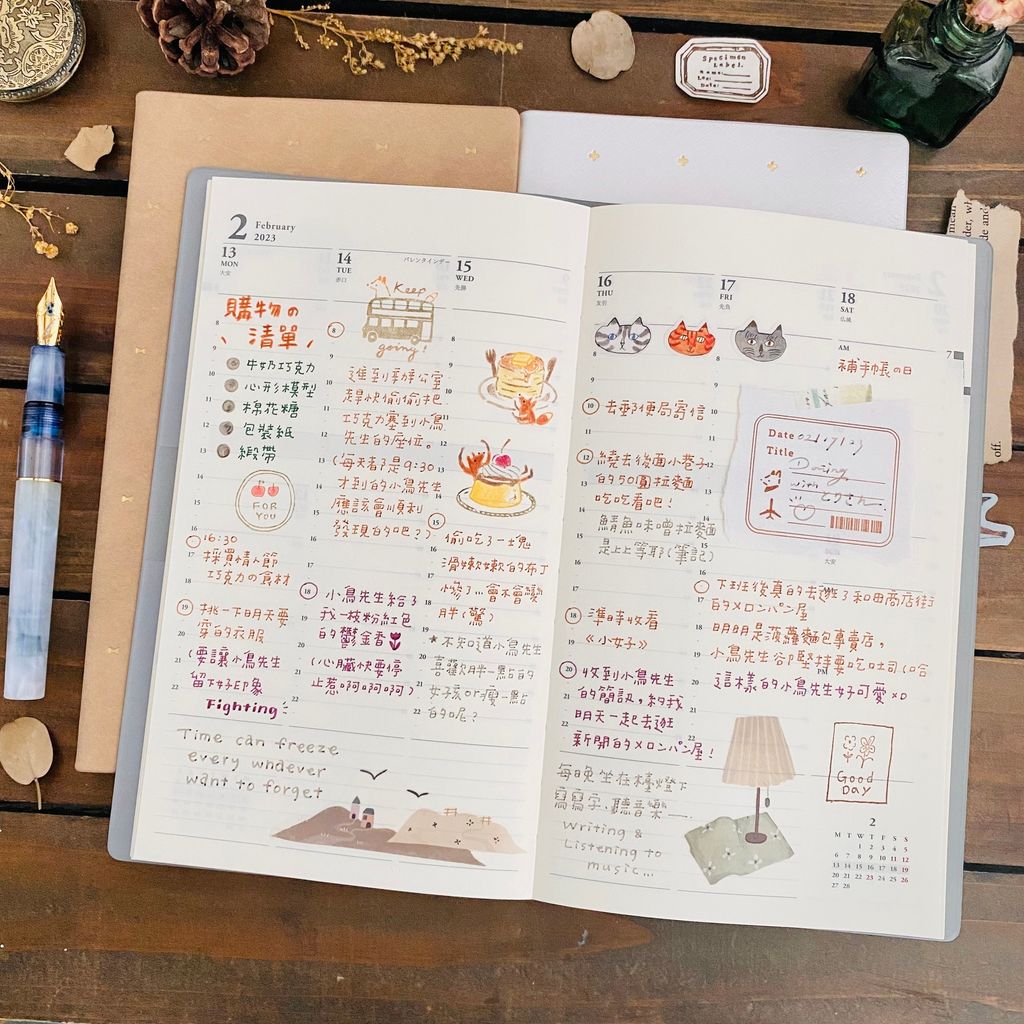 Specimen
Label.
Name:
Loc:
Date:
2
February
2023
13
MON
大安
購物の
清單
牛奶巧克力
心形模型
棉花糖
包裝紙
緞帶
FOR
YOU
16:30
採買情人節
巧克力の食材
挑一下明天要
穿的衣服
(要讓小鳥先生
留下好印象
Fighting
Time can freeze
every whaever
want to forget
14
TUE
赤口
バレンタインデー
Keep
going!
進到辦公室
趕快偷偷把
巧克力塞到小鳥
先生的座位。
(每天都是9:30
才到的小鳥先生
應該會順利
發現的吧?)
小鳥先生給了
我一枝粉紅色
的鬱金香
(心臟快要停
止惹啊啊啊)
15
WED
先勝
偷吃了一塊
滑嫩嫩的布丁
慘了...會不會變
胖(驚)
*不知道小鳥先生
喜歡胖一點的
女孩or瘦一點
的呢?
16
THU
友引
去郵便局寄信
繞去後面小巷子
的50圓拉麵
吃吃看吧!
鯖魚味噌拉麵
是上上等耶(筆記)
準時收看
《小女子》
收到小鳥先生
的簡訊,約我
明天一起去逛
新開的メロンパン屋!
每晚坐在檯燈下
寫寫字、聽音樂
Writing &
Listening to
music...
17
FRI
先負
下班後真的去逛了和田商店街
的メロンパン屋
明明是菠蘿麵包專賣店,
小鳥先生卻堅持要吃吐司(哈
這樣的小鳥先生好可愛xD
18
SAT
仏滅
AM
補手帳の日
Date
Title
Dining
with
とりさん
大安
PM
Good
DAY
2
M T W T F S S
1 2 3 4 5
6 7 8 9 10 11 12
13 14 15 16 17 18 19
20 21 22 23 24 25 26
27 28
7
off.